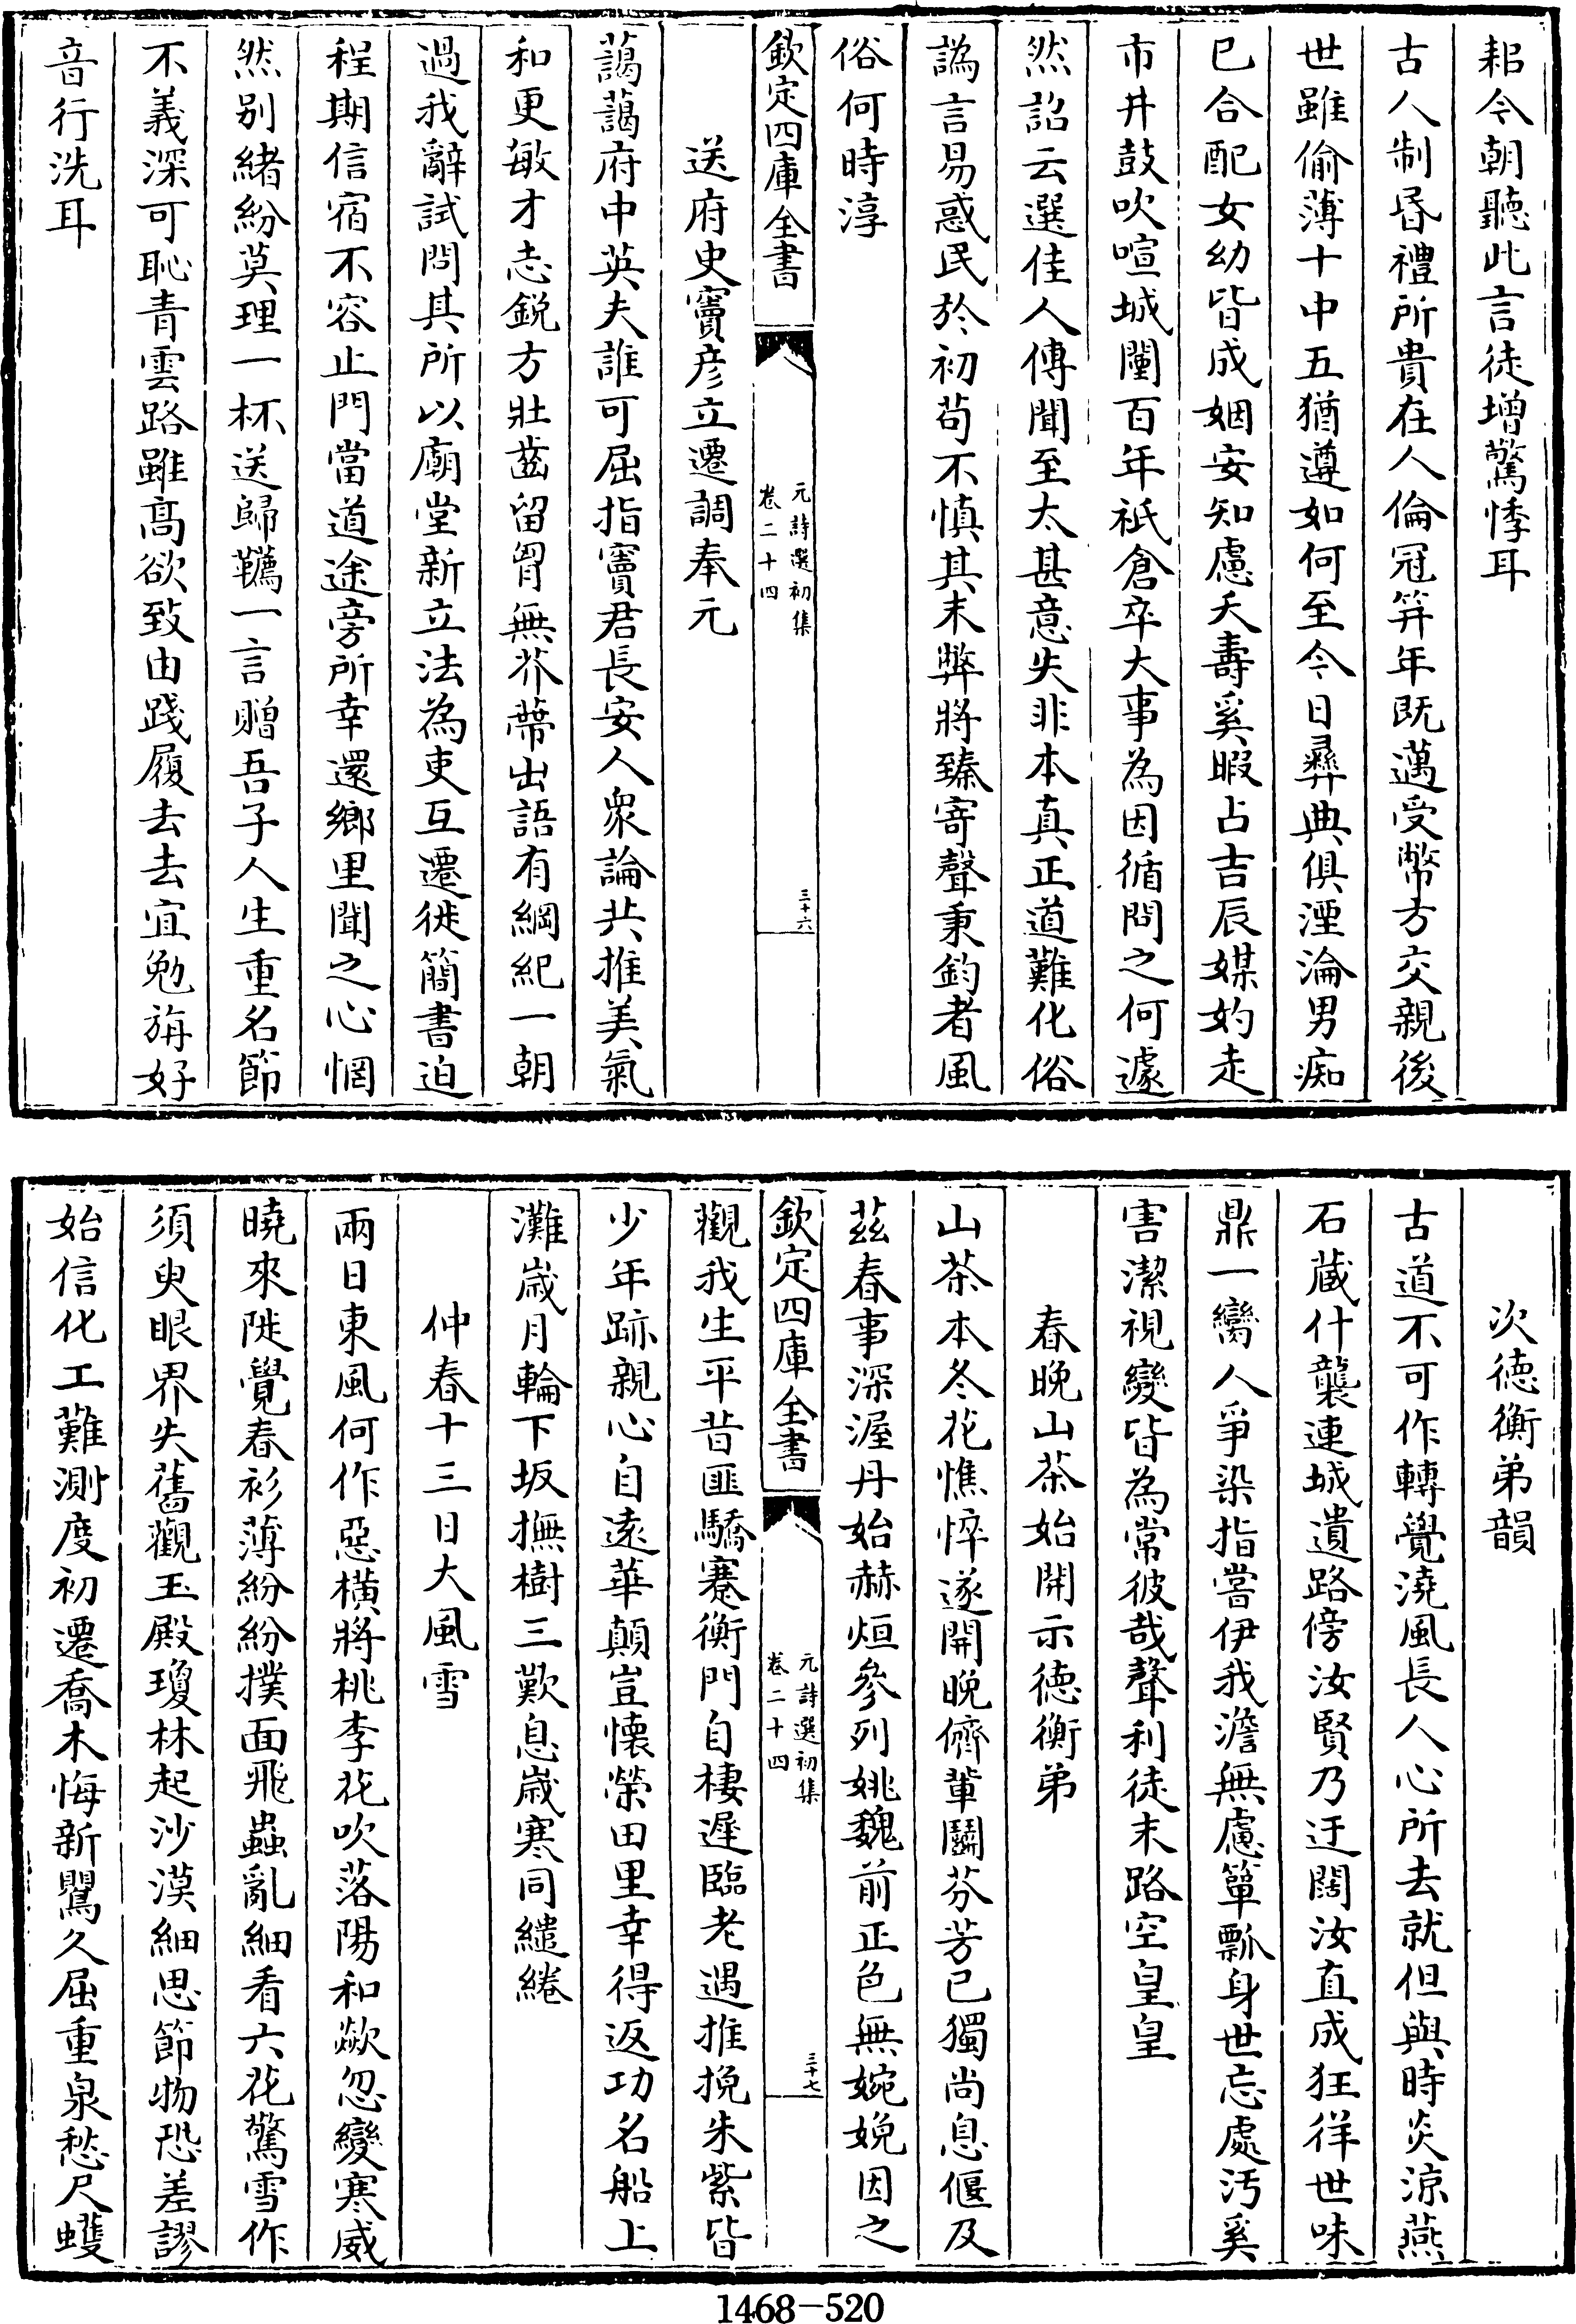 耜令朝聽此言徒增驚悸耳
古人制昏禮所貴在人倫冠笄年既邁受幣方交親後
世雖偷薄十中五猶遵如何至今日彝典俱湮淪男痴
已合配女幼皆成姻安知慮夭壽奚暇占吉辰媒妁走
市井鼓吹喧城闉百年祇倉卒大事為因循問之何遽
然詔云選佳人傳聞至太甚意失非本真正道難化俗
譌言易惑民於初苟不慎其末弊將臻寄聲秉鈞者風
俗何時淳
欽定四庫全書
元詩選初集
卷二十四
三十六
送府史竇彦立遷調奉元
藹藹府中英夫誰可屈指竇君長安人衆論共推美氣
和更敏才志鋭方壯齒留胷無芥蔕出語有綱紀一朝
過我辭試問其所以廟堂新立法為吏互遷徙簡書迫
程期信宿不容止門當道途旁所幸還鄉里聞之心惘
然别緒紛莫理一杯送歸鞿一言贈吾子人生重名節
不義深可恥青雲路雖髙欲致由踐履去去宜勉旃好
音行洗耳
次德衡弟韻
古道不可作轉覺澆風長人心所去就但與時炎涼燕
石蔵什襲連城遺路傍汝賢乃迂闊汝直成狂徉世味
鼎一臠人爭染指嘗伊我澹無慮簞瓢身世忘處汚奚
害潔視變皆為常彼哉聲利徒末路空皇皇
春晚山茶始開示德衡弟
山茶本冬花憔悴遂開晚儕輩鬭芬芳已獨尚息偃及
茲春事深渥丹始赫烜參列姚魏前正色無婉娩因之
觀我生平昔匪驕蹇衡門自棲遲臨老遇推挽朱紫皆
欽定四庫全書
元詩選初集
卷二十四
三十七
少年跡親心自逺華顛豈懐榮田里幸得返功名船上
灘嵗月輪下坂撫樹三歎息嵗寒同繾綣
仲春十三日大風雪
兩日東風何作惡横將桃李花吹落陽和歘忽變寒威
曉來陡覺春衫薄紛紛撲面飛蟲亂細看六花驚雪作
須臾眼界失舊觀玉殿瓊林起沙漠細思節物恐差謬
始信化工難測度初遷喬木悔新鸎久屈重泉愁尺蠖
1468—520